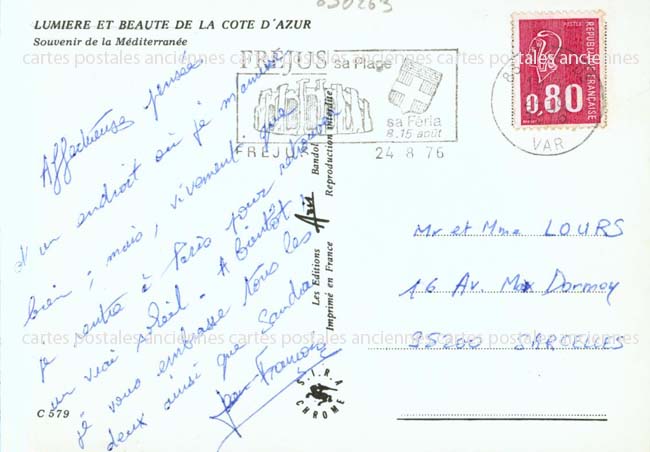 050263
LUMIERE ET BEAUTE DE LA COTE D'AZUR
Souvenir de la Méditerranée
cartes postales anciennes cartes postales anciennes cartes postales anciennes
FRÉJUS
sa Plage
sa Féria
8.15 août
FREJUS
24 8 76
VAR
POSTES
REPUBLIQUE FRANÇAISE
0,80
Affectueuse pensée
d'un endroit où je m'amuse
bien ; mais, vivement que
je rentre à Paris pour retrouver
un vrai soleil. A bientôt !
je vous embrasse tous les
deux ainsi que Sandra
Jean-François
Les Editions Aris Bandol
Imprimé en France Reproduction interdite
Mr et Mme LOURS
16 Av. Max Dormoy
95200 SARCELLES
cartes postales anciennes cartes postales anciennes cartes postales anciennes
S.I.R.A.
CHROME
C 579